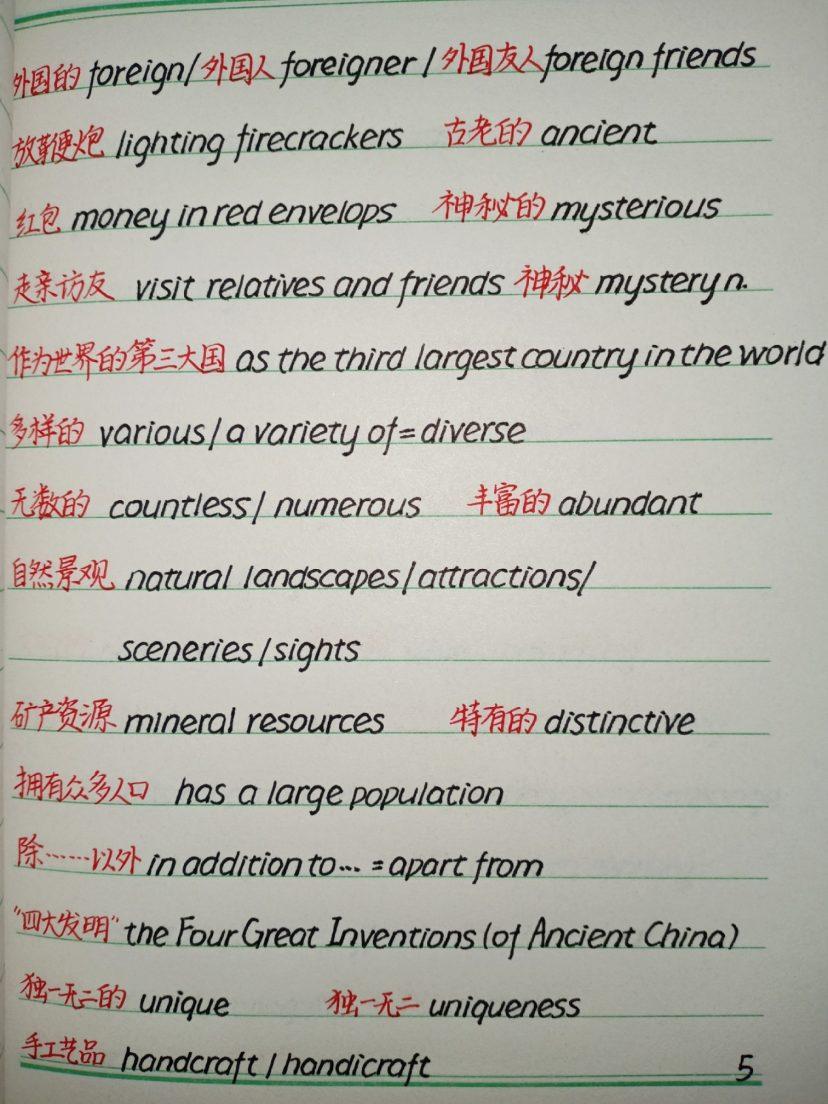 外国的 foreign/外国人 foreigner/外国友人 foreign friends
放鞭炮 lighting firecrackers 古老的 ancient
红包 money in red envelops 神秘的 mysterious
走亲访友 visit relatives and friends 神秘 mystery n.
作为世界的第三大国 as the third largest country in the world
多样的 various/a variety of=diverse
无数的 countless/numerous 丰富的 abundant
自然景观 natural landscapes/attractions/
sceneries/sights
矿产资源 mineral resources 特有的 distinctive
拥有众多人口 has a large population
除……以外 in addition to... =apart from
"四大发明" the Four Great Inventions (of Ancient China)
独一无二的 unique 独一无二 uniqueness
手工艺品 handcraft/handicraft 5